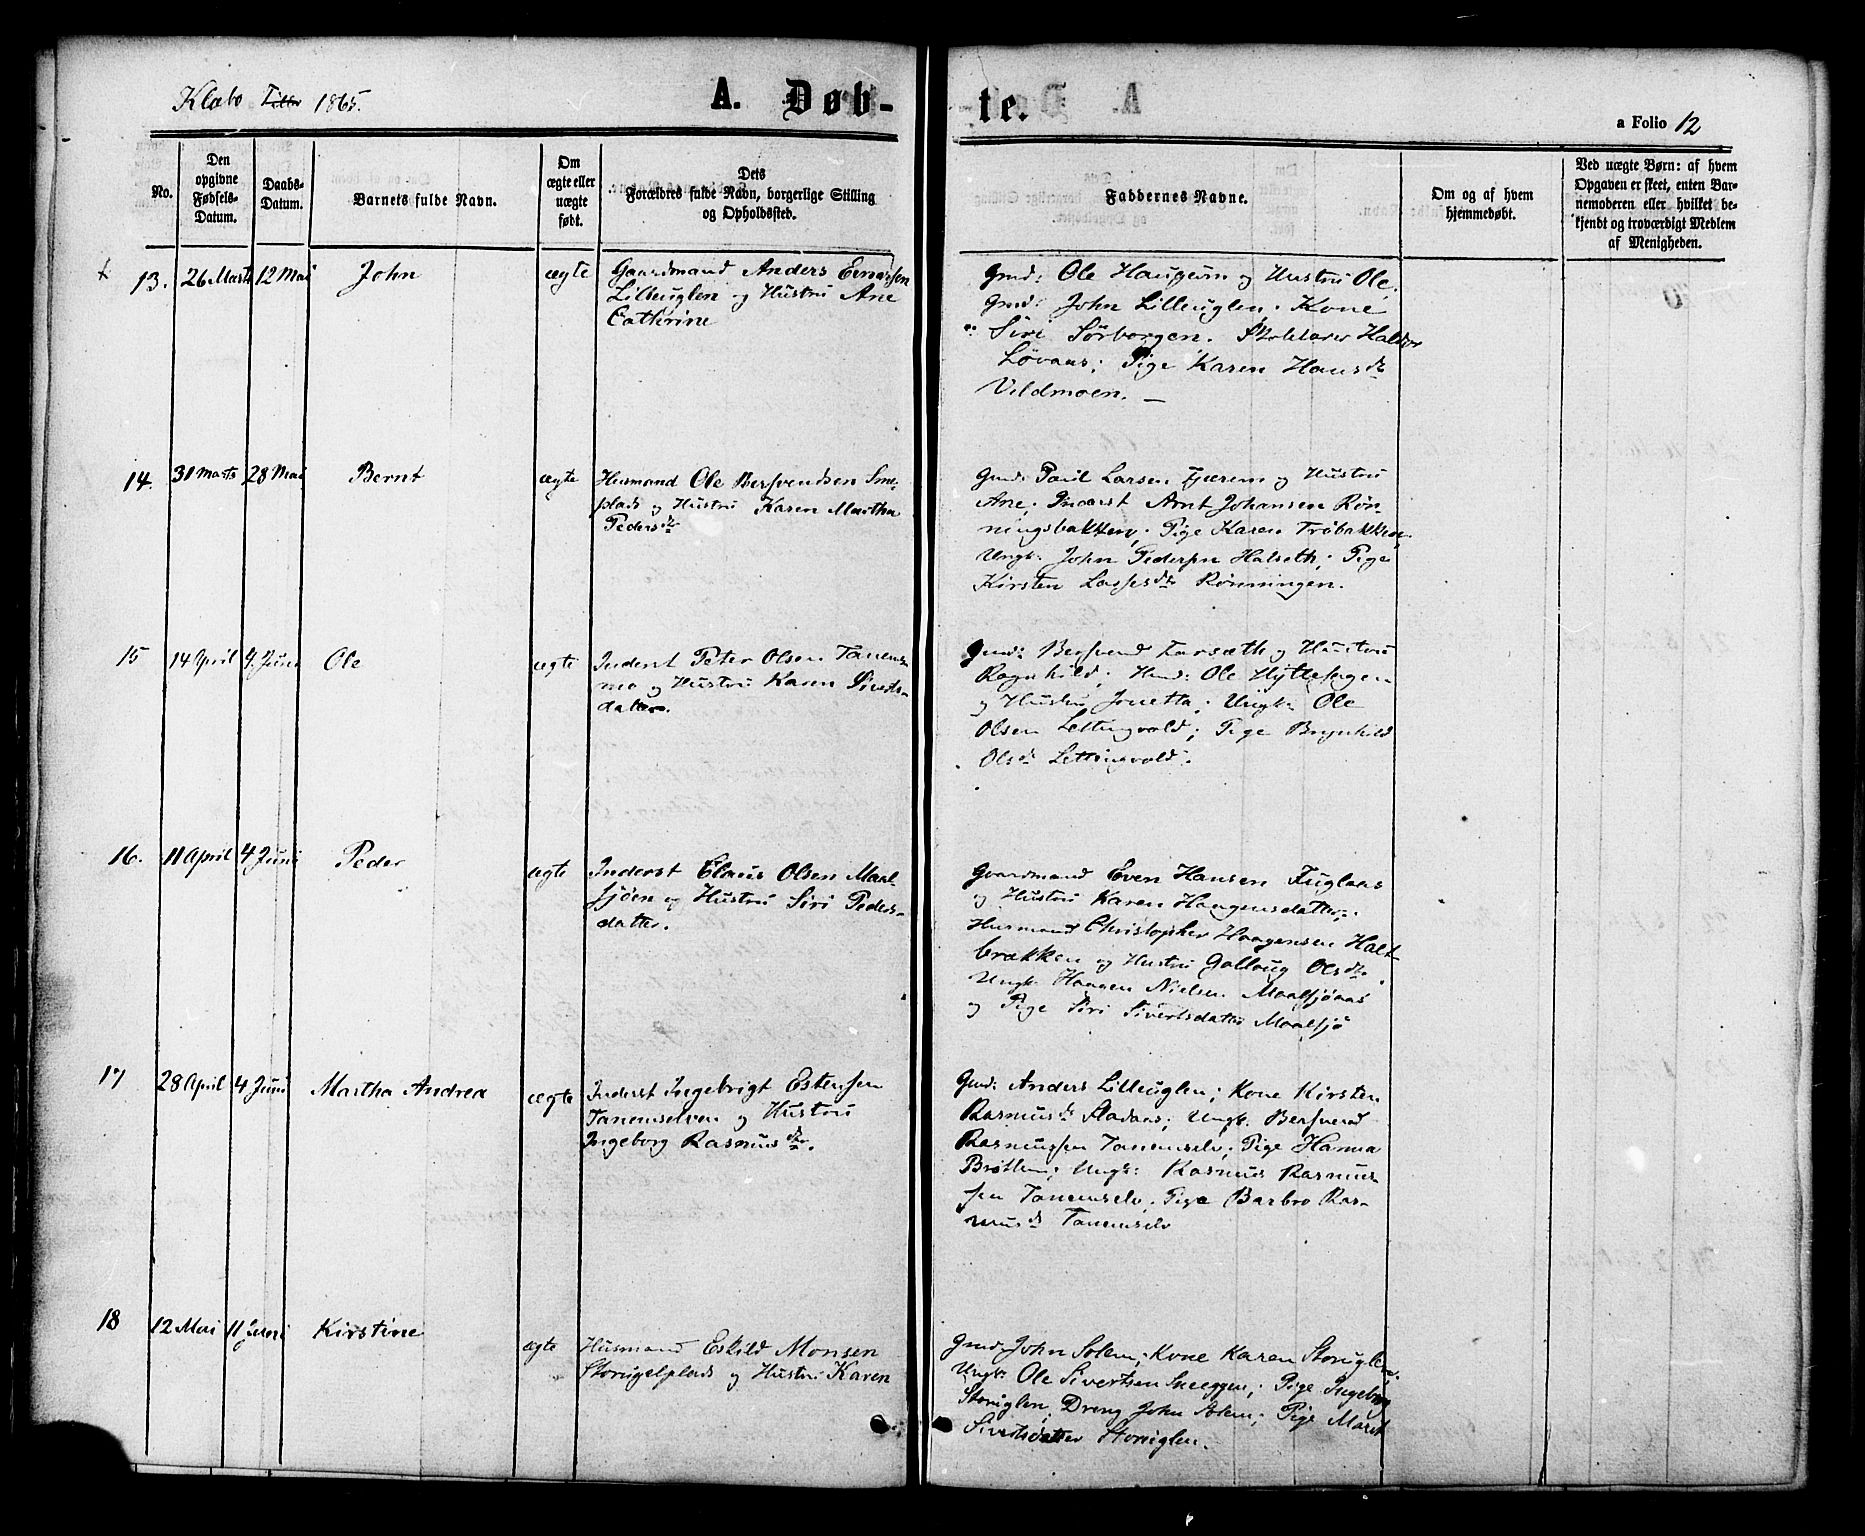 Klæbo Tiller 1865.
A. Døb-
te.
a Folio 12
No.
Den
opgivne
Fødsels-
Datum.
Daabs-
Datum.
Barnets fulde Navn.
Om
ægte eller
uægte
født.
Dets
Forældres fulde Navn, borgerlige Stilling
og Opholdssted.
Faddernes Navne.
Om og af hvem
hjemmedøbt.
Ved uægte Børn: af hvem
Opgaven er skeet, enten Bar-
nemoderen eller hvilket be-
kjendt og troværdigt Medlem
af Menigheden.
13. 26 Marts 12 Mai John ægte
Gaardmand Anders Einarsen
Lilleuglen og Hustru Ane
Cathrine
Gmd: Ole Haugum og Hustru Ole,
Gmd: John Lilleuglen. Kone
Siri Sørborgen. Haldor
Løvaas; Pige Karen Hansdr
Vildmoen. —
14. 31 Marts 28 Mai Bernt ægte
Husmand Ole Bersvendsen Sme-
plads og Hustru Karen Martha
Pedersdr
Gmd: Paul Larsen Tjærem og Hustru
Ane; Inderst Arnt Johansen Røn-
ningsbakken; Pige Karen Trøbakken
Ungk: John Pedersen Halseth; Pige
Kirsten Lassesdr Rønningen.
15 14 April 4 Juni Ole ægte
Inderst Peter Olsen Tanems-
mo og Hustru Karen Siverts-
datter.
Gmd: Bersvend Forsæth og Hustru
Ragnhild; Hmd: Ole Hyttehagen
og Hustru Jonetta; Ungk: Ole
Olsen Lettingvold; Pige Brynhild
Olsdr Lettingvold.
16. 11 April 4 Juni Peder ægte
Inderst Claus Olsen Maal-
sjøen og Hustru Siri Peders-
datter.
Gaardmand Even Hansen Fuglaas
og Hustru Karen Haagensdatter;
Husmand Christopher Haagensen Halt-
brækken og Hustru Gollaug Olsdr.
Ungk. Haagen Nielsen Maalsjøaas
og Pige Siri Sivertsdatter Maalsjø
17 28 April 4 Juni Martha Andrea ægte
Inderst Ingebrigt Estensen
Tanemselven og Hustru
Ingeborg Rasmusdtr.
Gmd: Anders Lilleuglen; Kone Kirsten
Rasmusdr Fladaas; Ungk. Bersvend
Rasmussen Tanemselv; Pige Hanna
Brøttem; Ungk: Rasmus Rasmus-
sen Tanemselv; Pige Barbro Ras-
musdr Tanemselv
18 12 Mai 11 Juni Kirstine ægte
Husmand Eskild Monsen
Storuglplads og Hustru Karen
Gmd. John Solem; Kone Karen Storuglen;
Ungk: Ole Sivertsen Sneeggen; Pige Ingeborg
Storuglen, Dreng John Solem; Pige Marit
Sivertsdatter Storuglen.